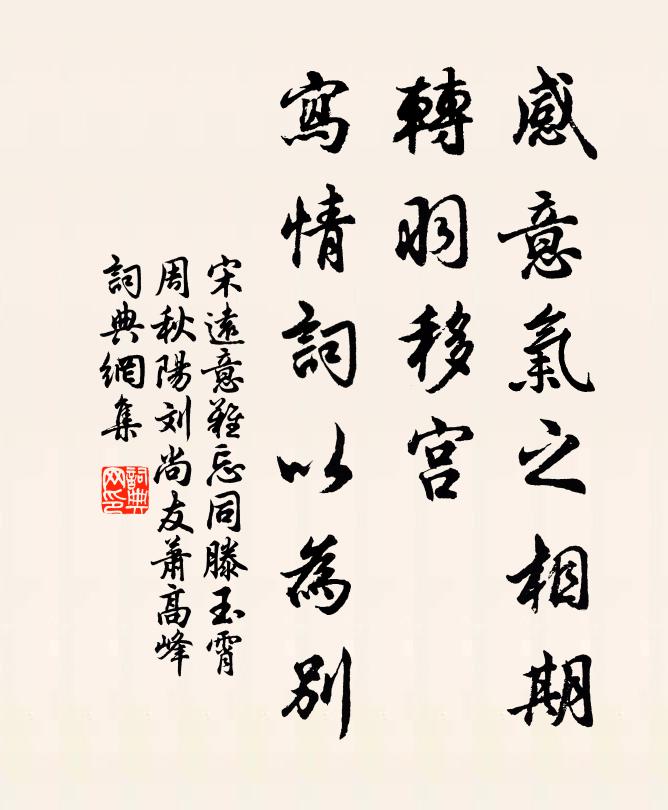 感意氣之相期
轉羽移宮
寫情詞以為別
宋遠意難忘同滕玉霄
周秋陽刘尚友蕭高峰
詞典網集
詞典網印